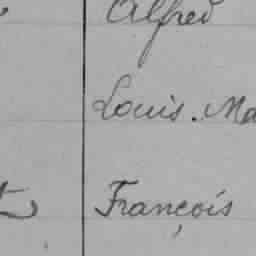 Alfred
Louis. Ma
François